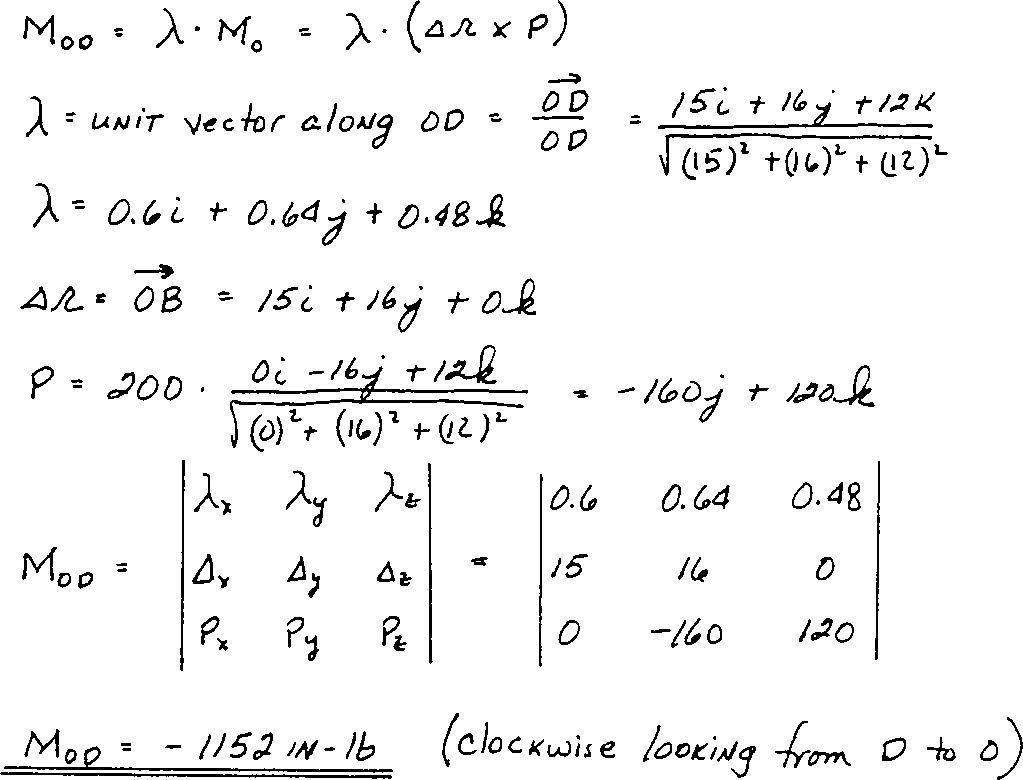 M_OD = λ · M_o = λ · (Δr x P)
λ = unit vector along OD = \overrightarrow{OD}/OD = (15i + 16j + 12k)/√((15)² + (16)² + (12)²)
λ = 0.6i + 0.64j + 0.48k
Δr = \overrightarrow{OB} = 15i + 16j + 0k
P = 200 · (0i - 16j + 12k)/√((0)² + (16)² + (12)²) = -160j + 120k
M_OD = | λx λy λz ; Δx Δy Δz ; Px Py Pz | = | 0.6 0.64 0.48 ; 15 16 0 ; 0 -160 120 |
M_OD = - 1152 in-lb (clockwise looking from D to O)